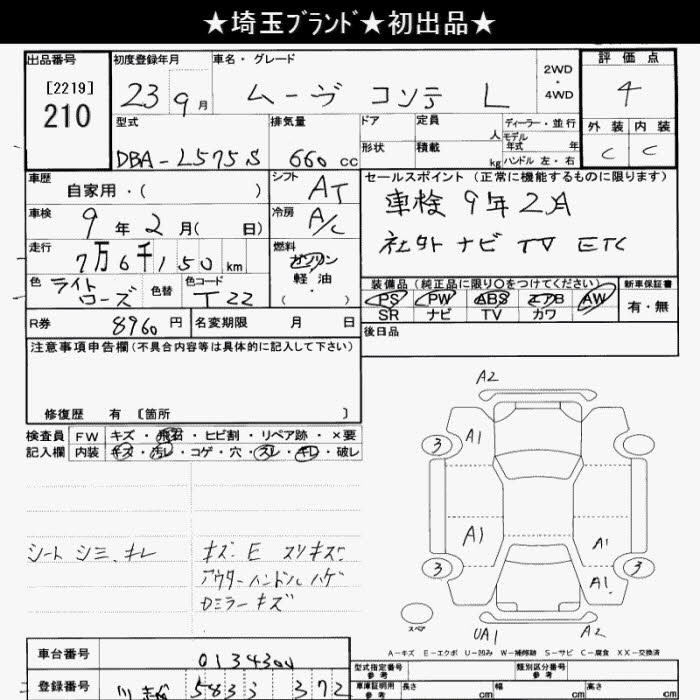 ★埼玉ﾌﾞﾗﾝﾄﾞ★初出品★
出品番号 初度登録年月 車名・グレード 評価点
[2219]
210
23 9月 ムーヴ コンテ L
2WD・4WD
4
型式 排気量 ドア 定員 人 ディーラー・並行 外装 内装
モデル年式 年
DBA-L575S 660cc 形状 積載 kg ハンドル 左・右 C C
車歴 自家用・( ) シフト AT
セールスポイント(正常に機能するものに限ります)
車検 9年2月( 日) 冷房 A/C
車検 9年2月
走行 7万6千150km 燃料 ガソリン 軽油 ( )
社外 ナビ TV ETC
色 ライトローズ 色替 色コード T22
装備品(純正品に限り○をつけてください) 新車保証書
PS PW ABS エアB AW
SR ナビ TV カワ 有・無
R券 8960円 名変期限 月 日
後日品
注意事項申告欄(不具合内容等は具体的に記入して下さい)
修復歴 有 [箇所 ]
検査員記入欄 FW キズ・飛石・ヒビ割・リペア跡・×要
内装 キズ・汚レ・コゲ・穴・スレ・キレ・破レ
シート シミ キレ
キズ E スリキズ
アウターハンドルハゲ
ロミラーキズ
A2
3 A1
A1 A1
3 A1 3
スペア UA1 A2
A-キズ E-エクボ U-凹み W-補修跡 S-サビ C-腐食 XX-交換済
車台番号
型式指定番号 参考 類別区分番号 参考
登録番号 5833 372
車庫証明用 参考 長さ cm 幅 cm 高さ cm